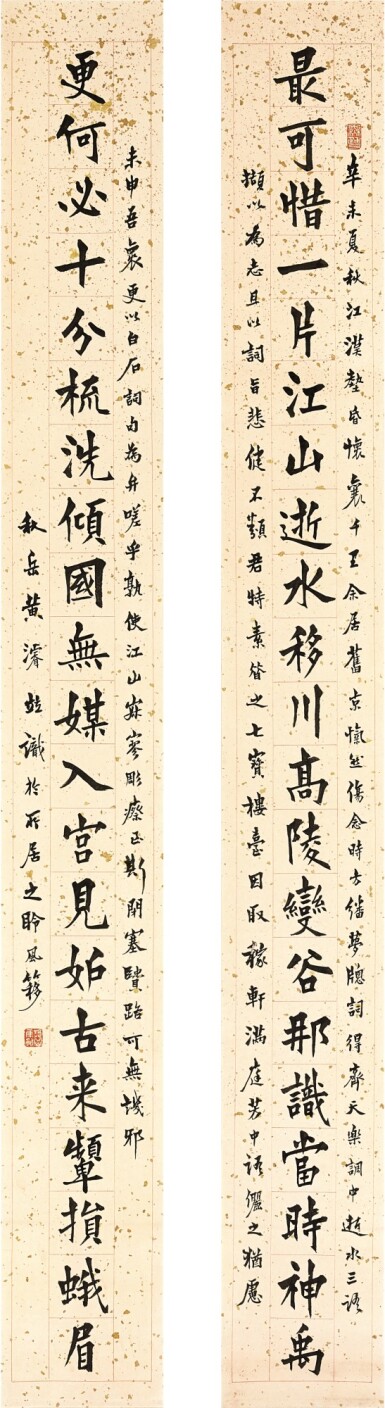 最可惜一片江山逝水移川髙陵變谷那識當時神禹
辛未夏秋江漢墊昏懷襄千里余居舊京愾然傷念時方繙夢牕詞得齊天樂調中逝水三語
擷以為志且以詞旨悲健不類君特素訾之七寶樓臺因取稼軒滿庭芳中語儷之猶慮
更何必十分梳洗傾國無媒入宮見妬古来顰損蛾眉
未申吾褱更以白石詞句為弁嗟乎孰使江山寂寥彫瘵至斯閉塞賢路可無譏邪
秋岳黄濬竝識於所居之聆風簃